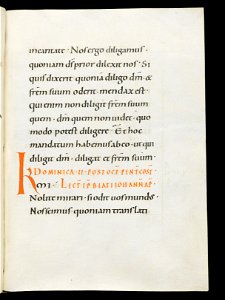 incaritate · Nosergo diligamus ·
quoniam ds prior dilexit nos · Si
quis dixerit quoniā diligo dm̄ · &
frēm suum oderit · mendax est ·
qui enim non diligit frēm suum
quem · dm̄ quem non uidet · quo
modo potest diligere · Et hoc
mandatum habemus abeo · ut qui
diligit dm̄ · diligat et frēm suum ·
DOMINICA · II · POST OCT PENTECOS
Kmi · LECT EP BEATI IOHANN AP
Nolite mirari · si odit uos mundus
Nos scimus · quoniam translati